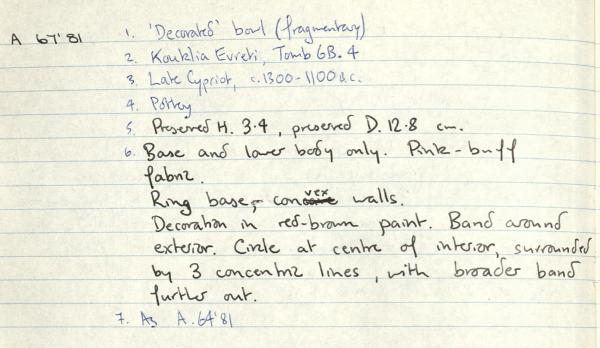 A 67'81
1. 'Decorated' bowl (fragmentary)
2. Kouklia Evreti, Tomb GB. 4
3. Late Cypriot, c.1300-1100 B.C.
4. Pottery
5. Preserved H. 3.4, preserved D. 12.8 cm.
6. Base and lower body only. Pink-buff
fabric.
Ring base, convex walls.
Decoration in red-brown paint. Band around
exterior. Circle at centre of interior, surrounded
by 3 concentric lines, with broader band
further out.
7. As A.64'81